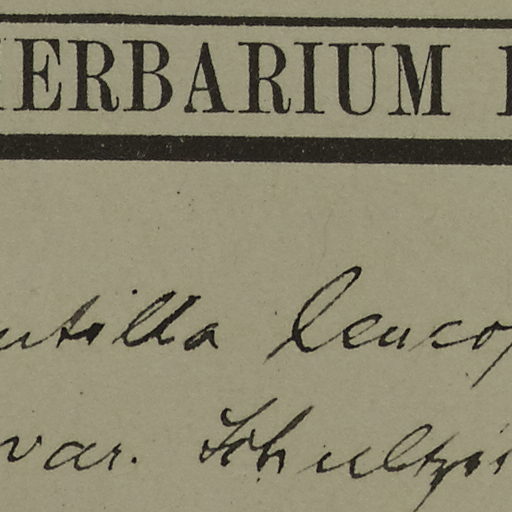 HERBARIUM
utilla leuco
var. Schultzii